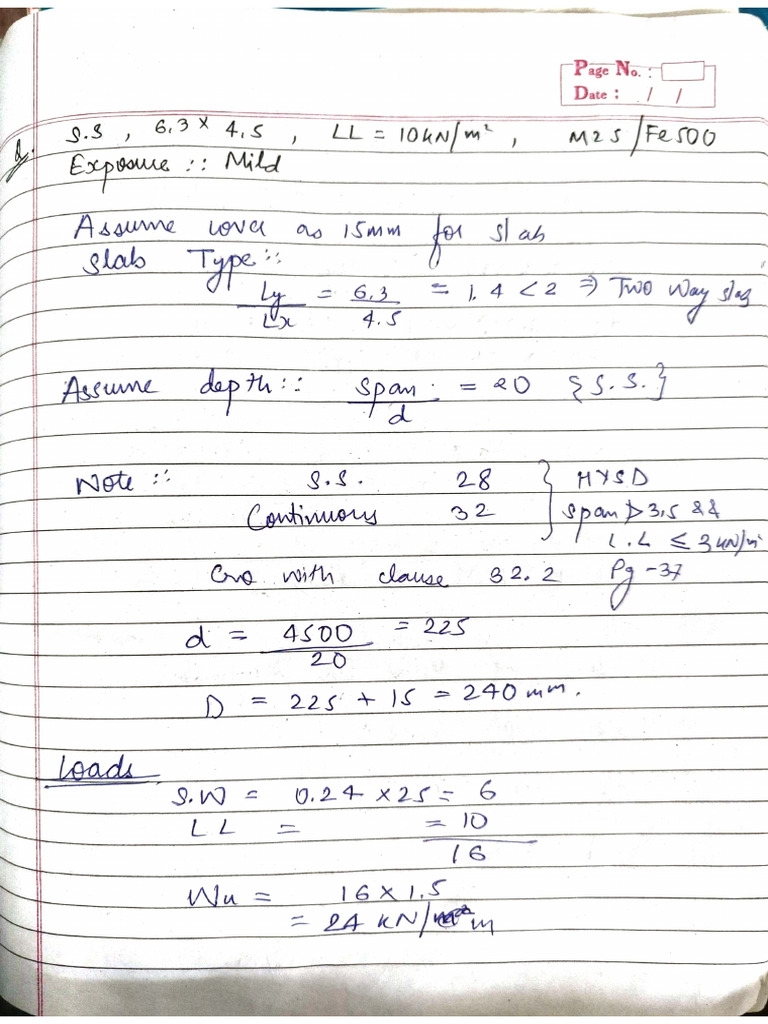 Page No. :
Date : / /
Q. S.S , 6.3 × 4.5 , LL = 10kN/m² , M25/Fe500
Exposure :: Mild
Assume cover as 15mm for slab
Slab Type ::
Ly/Lx = 6.3/4.5 = 1.4 < 2 ⇒ Two Way slab
Assume depth :: span/d = 20 {S.S.}
Note :: S.S. 28 } HYSD
Continuous 32 } Span ≯ 3.5 &&
L.L ≤ 3kN/m²
with clause 32.2 Pg-37
d = 4500/20 = 225
D = 225 + 15 = 240mm.
Loads
S.W = 0.24 × 25 = 6
LL = = 10
16
Wu = 16 × 1.5
= 24 kN/m